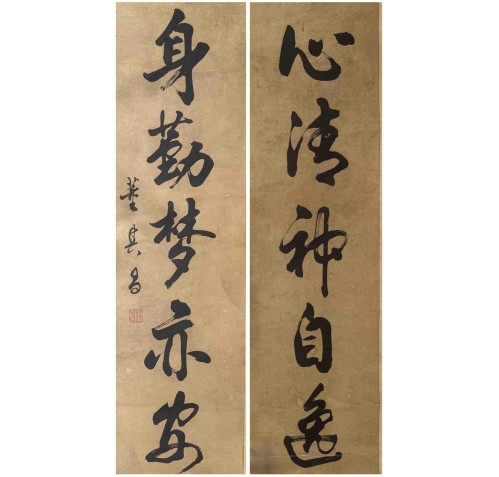 心清神自逸
身勤梦亦安
董其昌